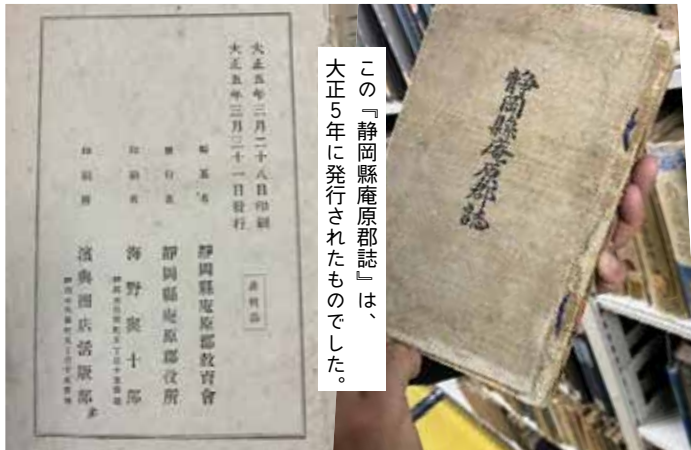 静岡縣庵原郡誌
この『静岡縣庵原郡誌』は、
大正5年に発行されたものでした。
大正五年三月二十八日印刷
大正五年三月三十一日發行
非賣品
編纂者 靜岡縣庵原郡敎育會
發行者 靜岡縣庵原郡役所
印刷者 海野與十郎
印刷所 濱與商店活版部